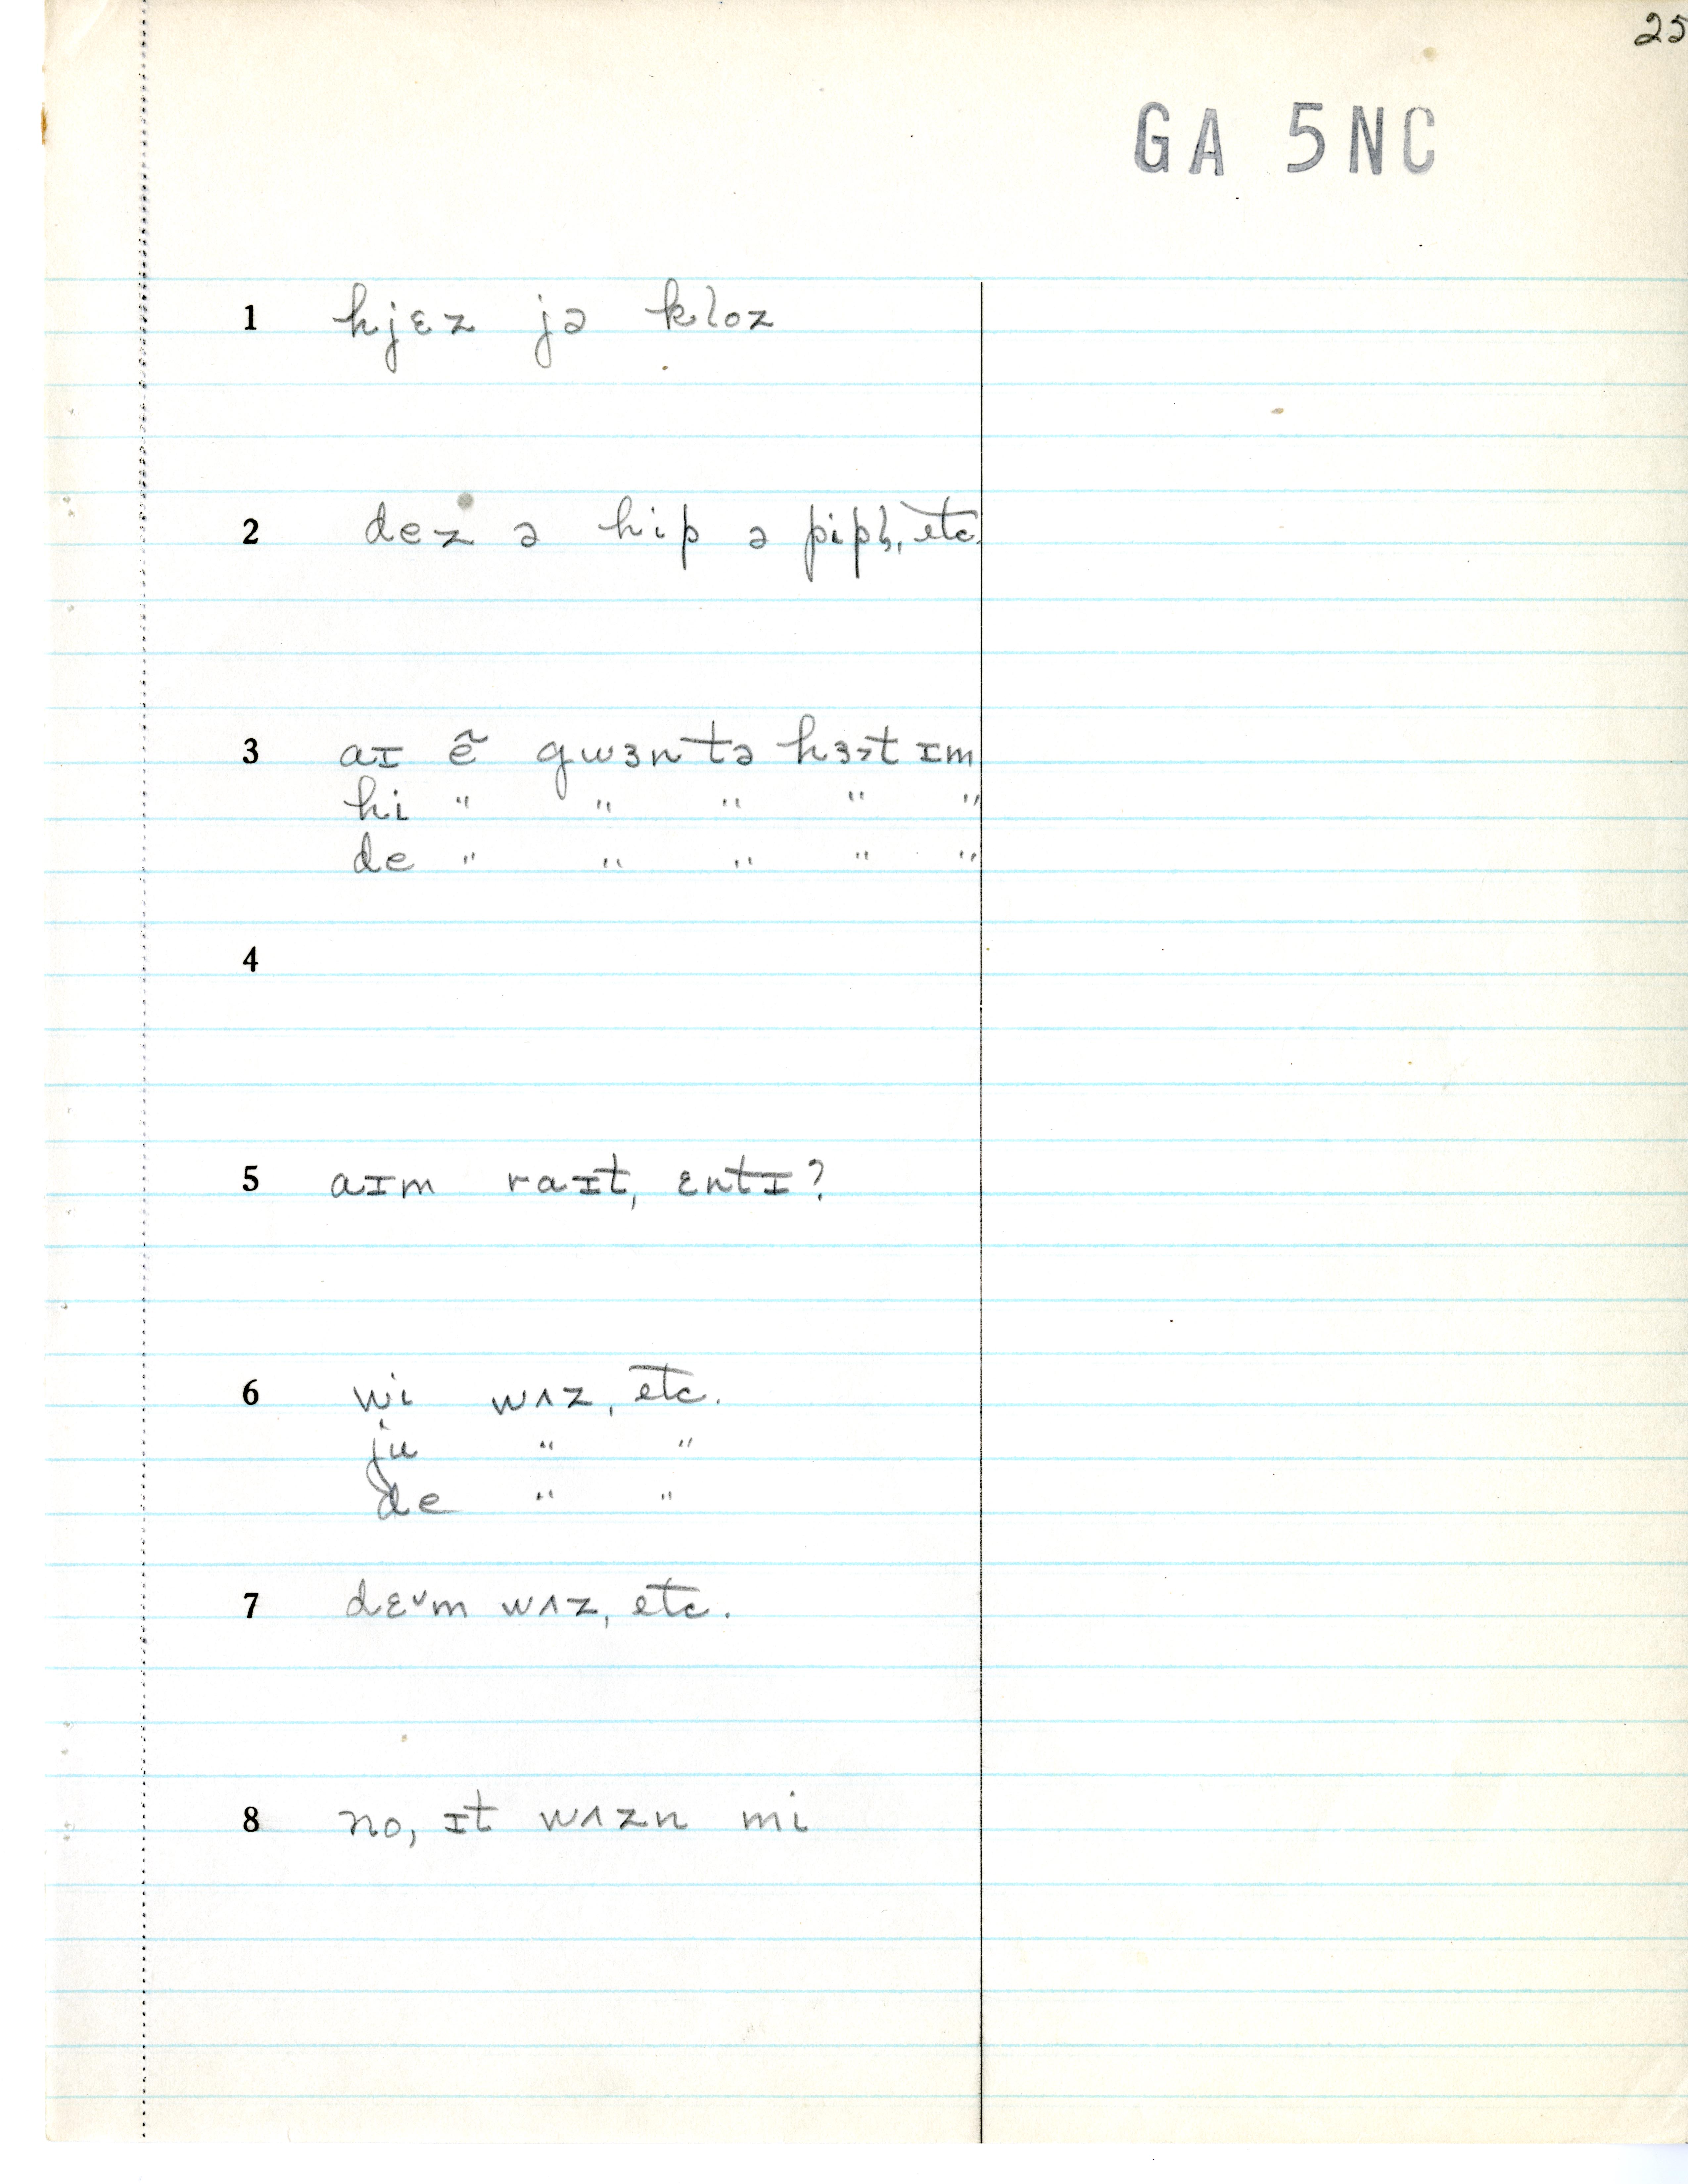 25
GA 5NC
1 hjɛz jə kloz
2 dez ə hip ə pipl̩, etc.
3 aɪ ẽ gwɜn tə hɜ˃t ɪm
hi " " " " "
de " " " " "
4
5 aɪm raɪt, ɛntɪ?
6 wi wʌz, etc.
ju " "
de " "
7 dɛ˅m wʌz, etc.
8 no, ɪt wʌzn mi